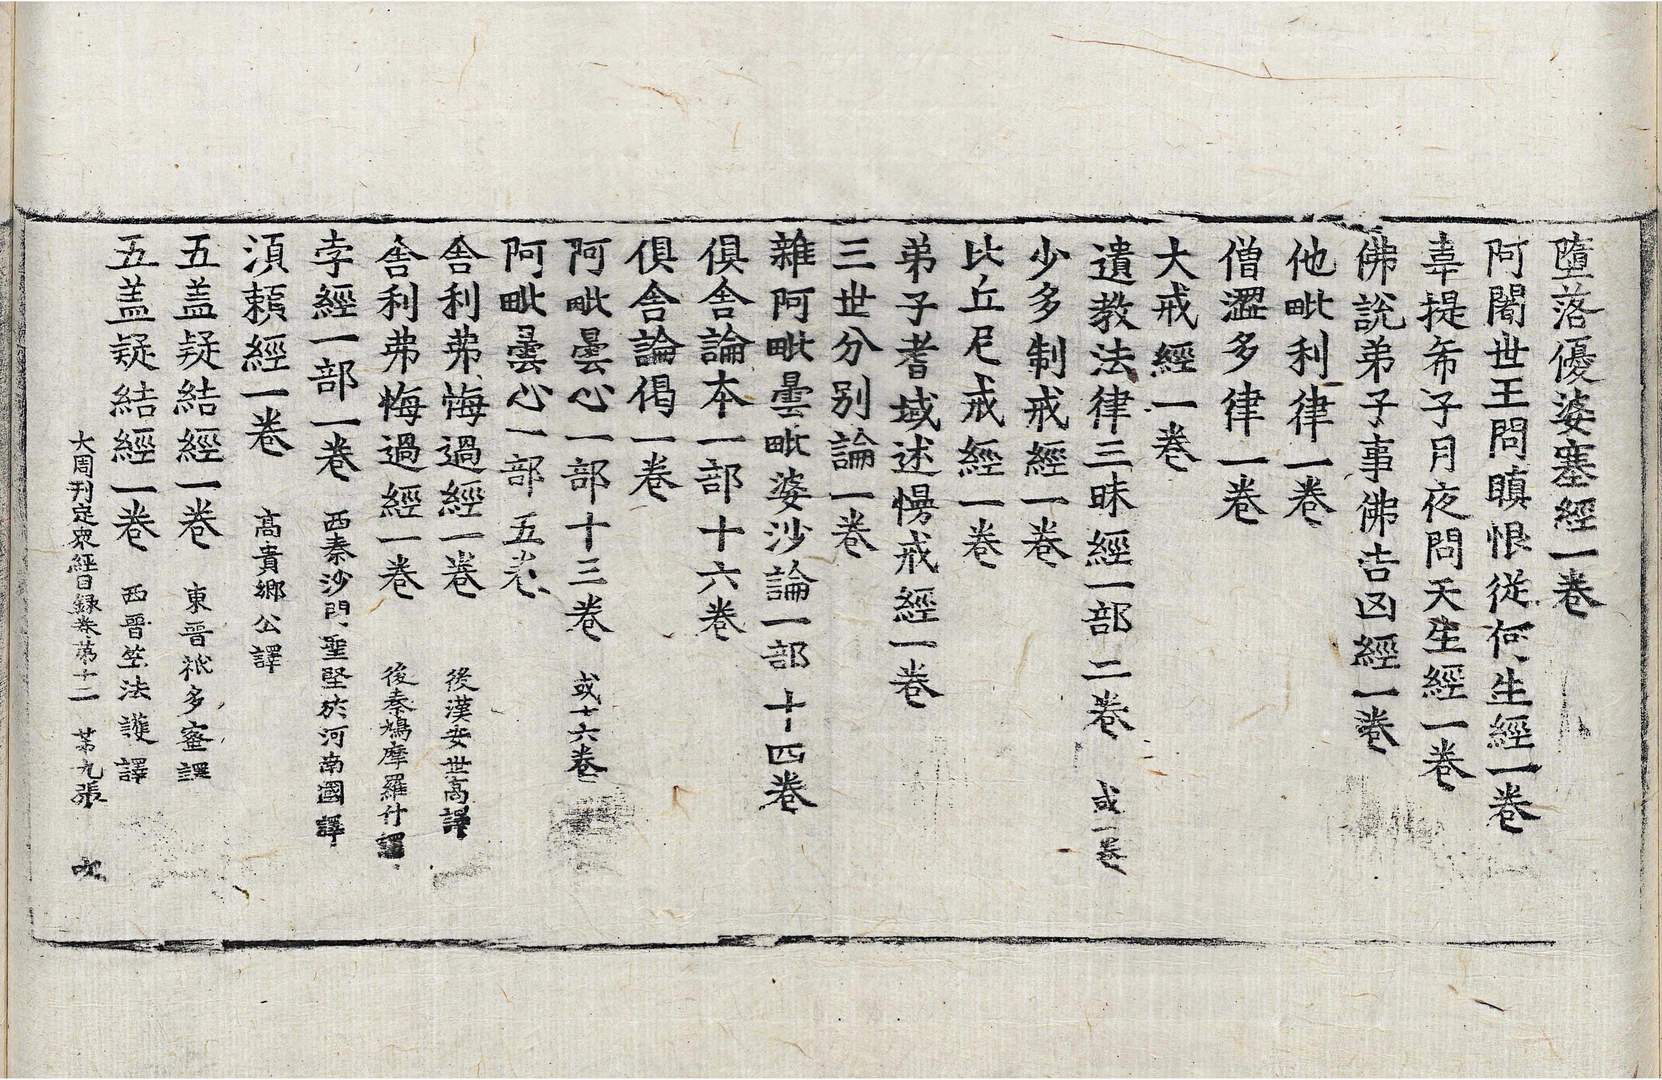 墮落優婆塞經一卷
阿闍世王問瞋恨從何生經一卷
辜提希子月夜問天生經一卷
佛說弟子事佛吉凶經一卷
他毗利律一卷
僧澀多律一卷
大戒經一卷
遺教法律三昧經一部二卷 或一卷
少多制戒經一卷
比丘尼戒經一卷
弟子耆域述慢戒經一卷
三世分別論一卷
雜阿毗曇毗婆沙論一部 十四卷
俱舍論本一部十六卷
俱舍論偈一卷
阿毗曇心一部十三卷 或十六卷
阿毗曇心一部五卷
舍利弗悔過經一卷 後漢安世高譯
舍利弗悔過經一卷 後秦鳩摩羅什譯
孛經一部一卷 西秦沙門聖堅於河南國譯
須賴經一卷 高貴鄉公譯
五盖疑結經一卷 東晉祇多蜜譯
五盖疑結經一卷 西晉竺法護譯
大周刊定衆經目録卷第十二 第九張